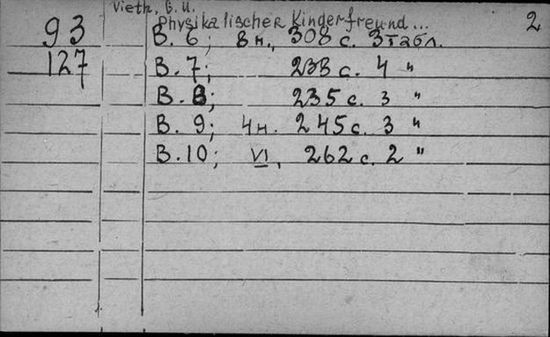 Vieth, G. U.
Physikalischer Kinderfreund... 2
93 B. 6; 8 н., 308 с. 3 табл.
127 B. 7; 233 с. 4 "
B. 8; 235 с. 3 "
B. 9; 4 н. 245 с. 3 "
B. 10; VI, 262 с. 2 "